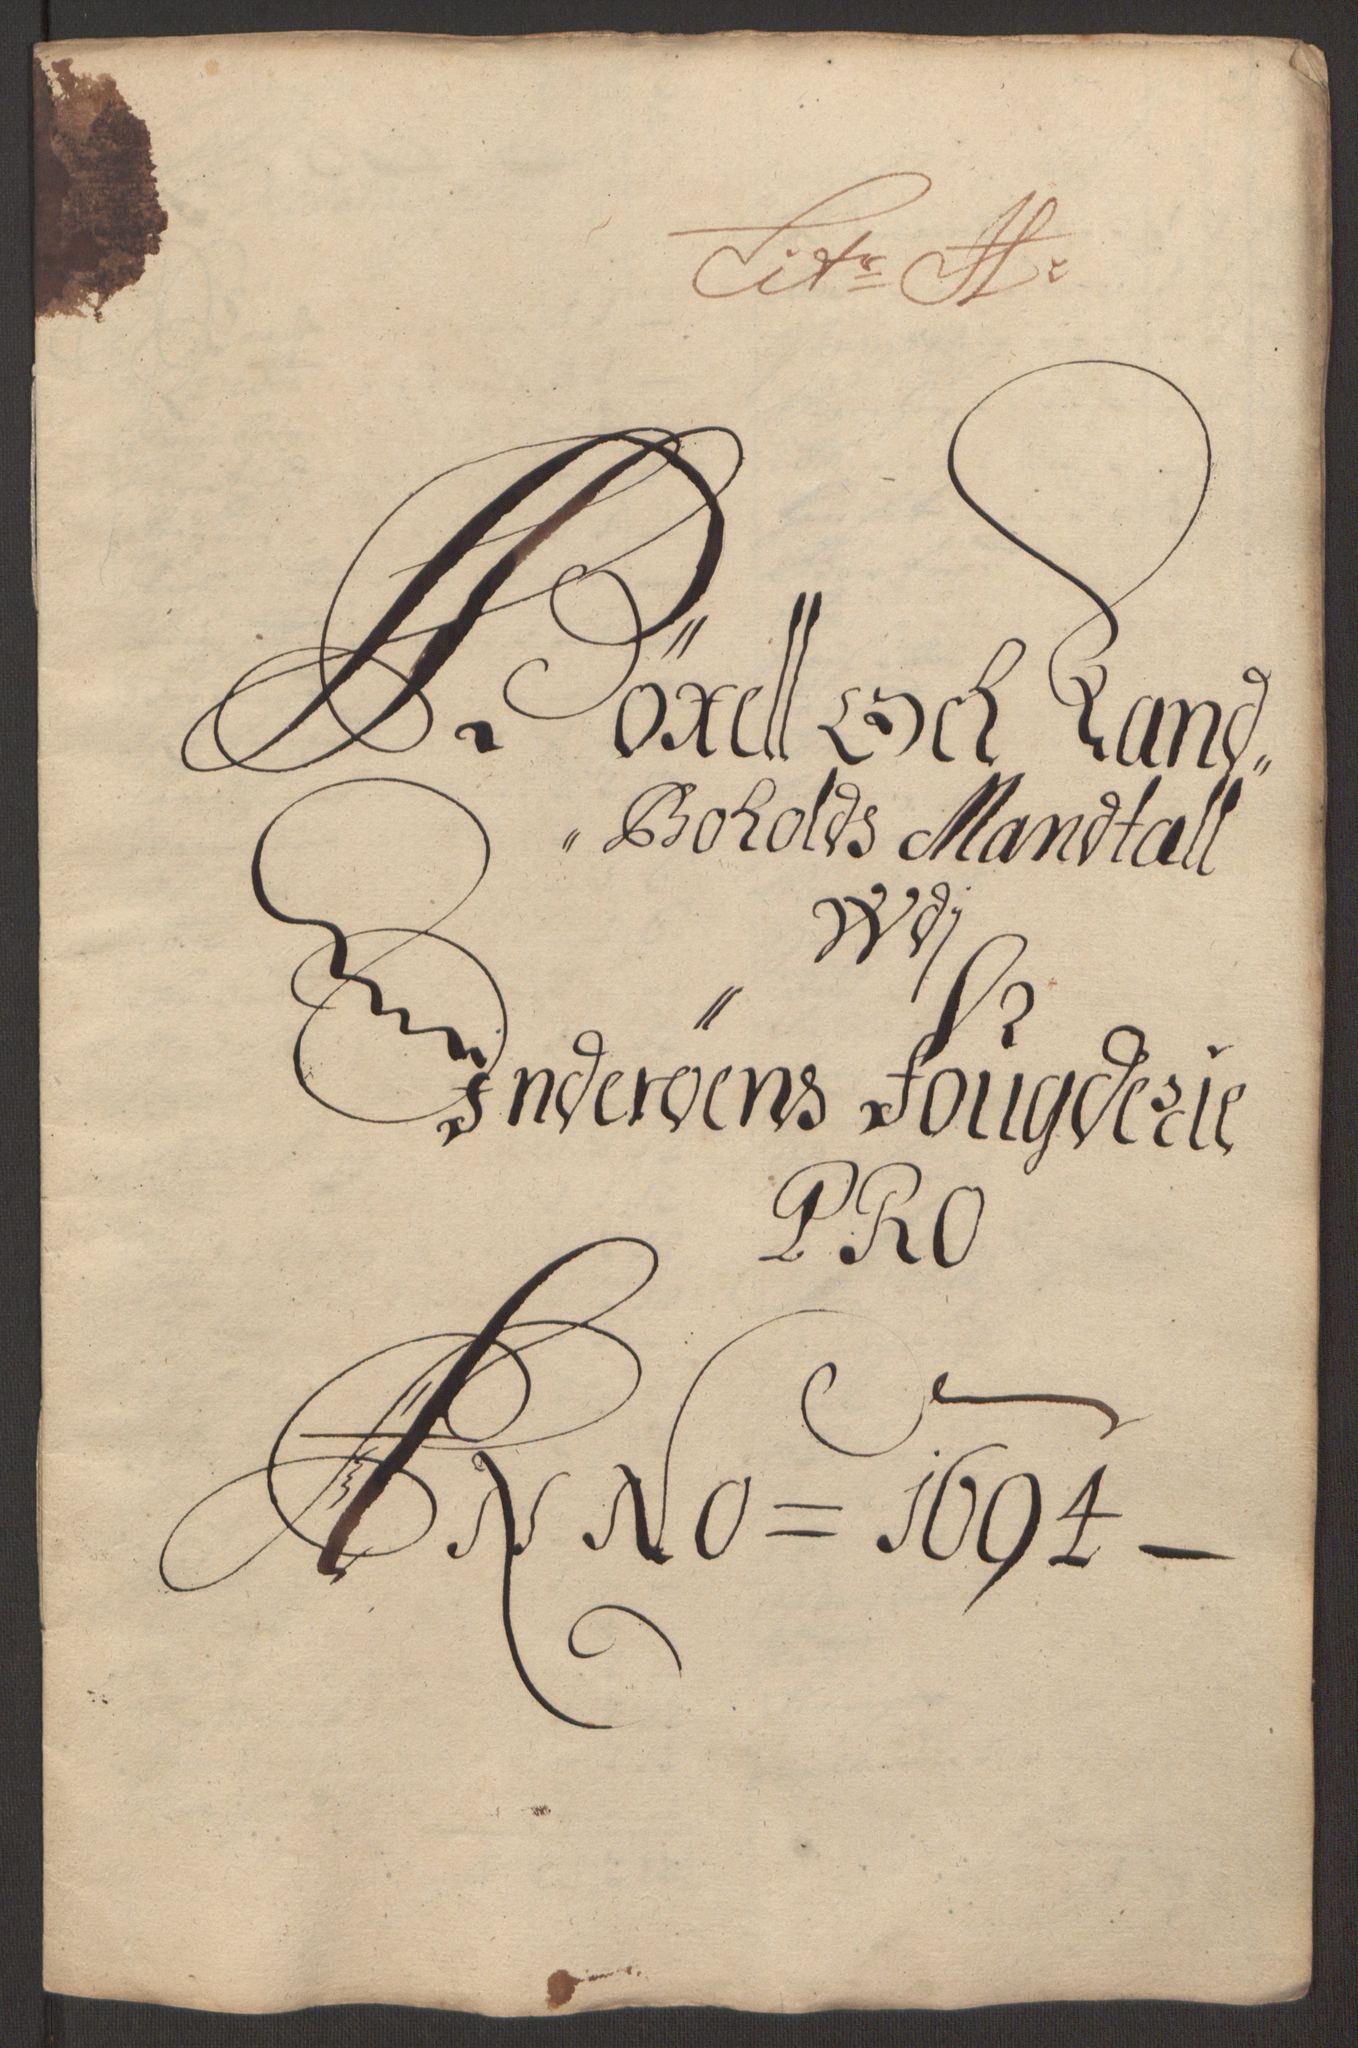 Litr H:
Röxell och Land„
„Boholds Mandtall
Wdj
Inderöens Fougderie
PRO
ANNO = 1694 —